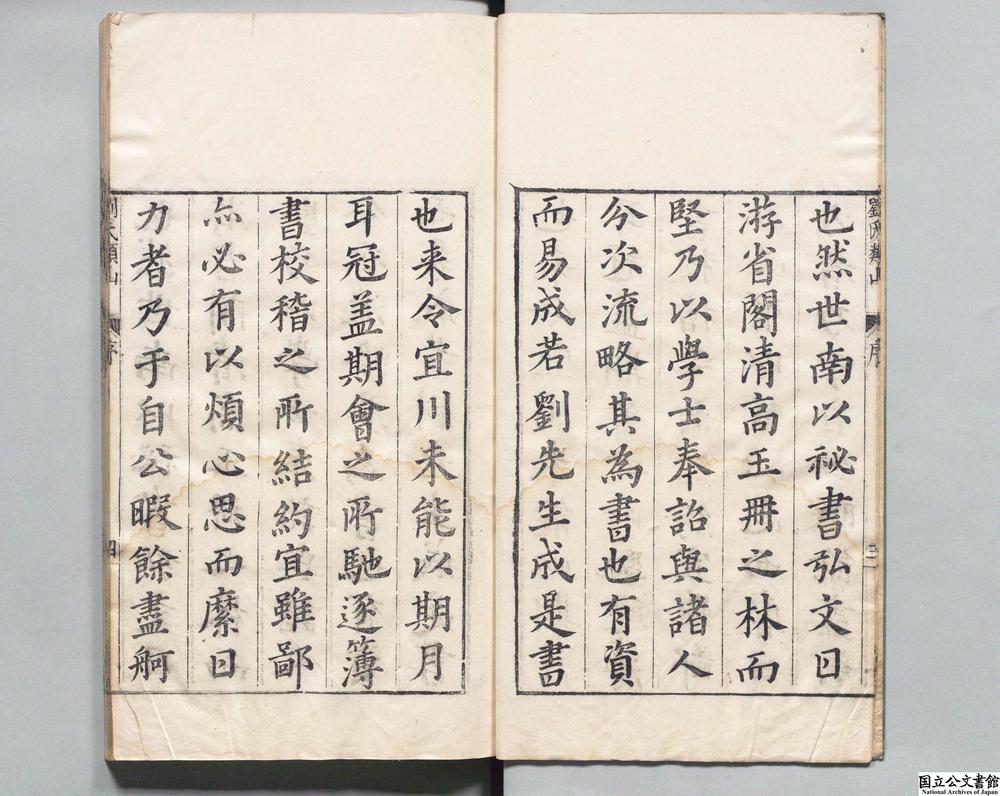 劉氏類山 序 三
也然世南以祕書弘文日
游省閣清高玉冊之林而
堅乃以學士奉詔與諸人
分次流略其為書也有資
而易成若劉先生成是書
也来令宜川未能以期月
耳冠盖期會之所馳逐簿
書校稽之所結約宜雖鄙
亦必有以煩心思而縻日
力者乃于自公暇餘盡舸
劉氏類山 序 四
国立公文書館
National Archives of Japan